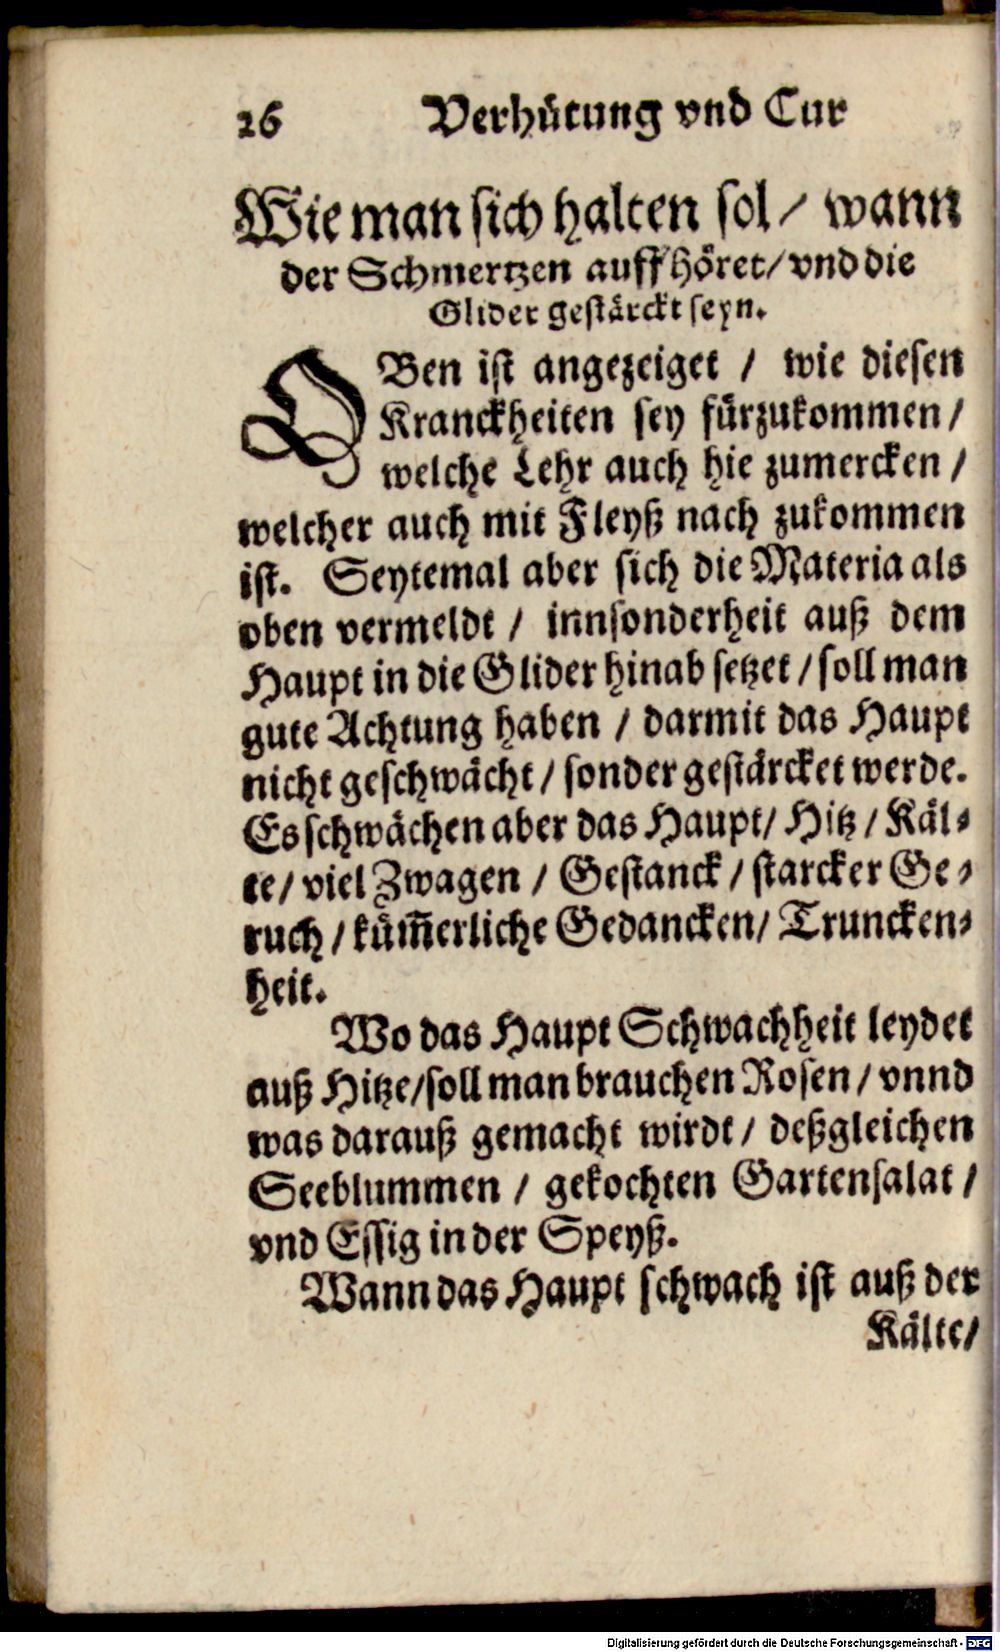 26 Verhütung vnd Cur
Wie man sich halten sol / wann
der Schmertzen auff höret/ vnd die
Glider gestärckt seyn.
OBen ist angezeiget / wie diesen
Kranckheiten sey fürzukommen /
welche Lehr auch hie zumercken /
welcher auch mit Fleyß nach zukommen
ist. Seytemal aber sich die Materia als
oben vermeldt / innsonderheit auß dem
Haupt in die Glider hinab setzet / soll man
gute Achtung haben / darmit das Haupt
nicht geschwächt / sonder gestärcket werde.
Es schwächen aber das Haupt/ Hitz / Käl-
te / viel Zwagen / Gestanck / starcker Ge-
ruch / küm̃erliche Gedancken/ Truncken-
heit.
Wo das Haupt Schwachheit leydet
auß Hitze/ soll man brauchen Rosen / vnnd
was darauß gemacht wirdt / deßgleichen
Seeblummen / gekochten Gartensalat /
vnd Essig in der Speyß.
Wann das Haupt schwach ist auß der
Kälte/
Digitalisierung gefördert durch die Deutsche Forschungsgemeinschaft - DFG